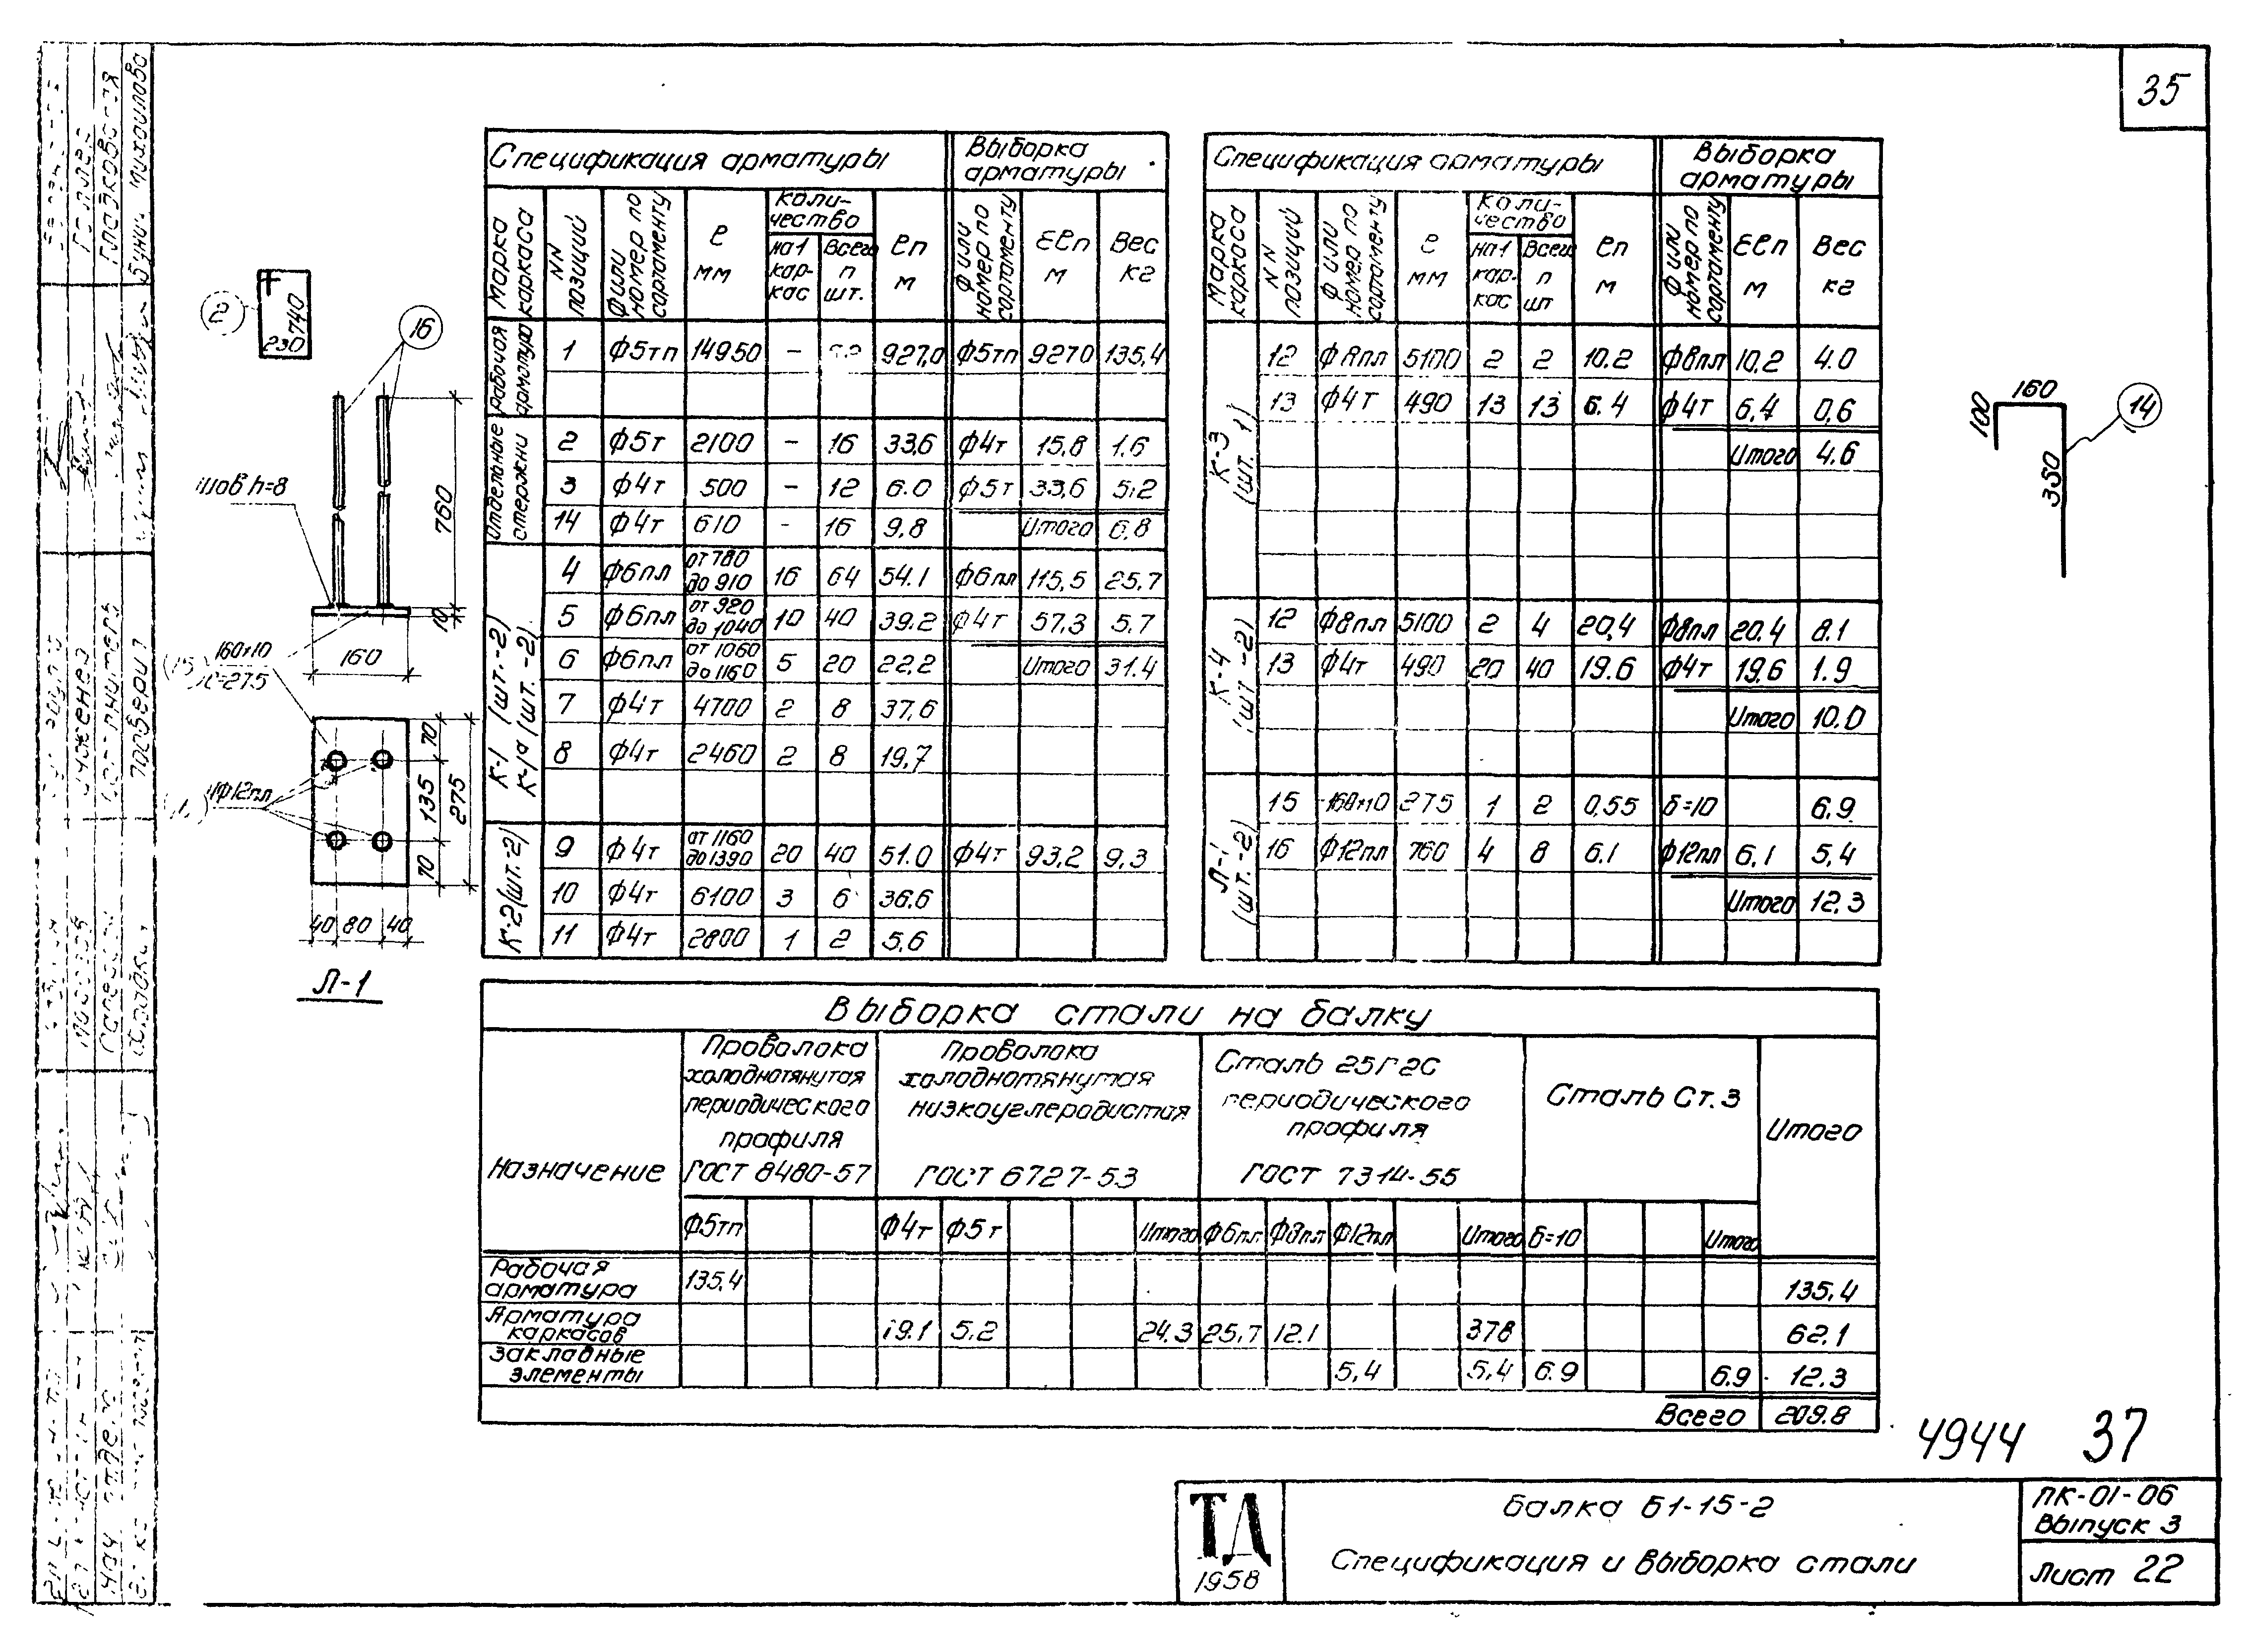 35
Спецификация арматуры
Выборка арматуры
Марка каркаса
NN позиций
Ф или номер по сортаменту
ℓ мм
Количество
на 1 каркас
Всего п шт.
ℓп м
Ф или номер по сортаменту
Σℓп м
Вес кг
Рабочая арматура
1 Ф5тп 14950 – 927,0 Ф5тп 927,0 135,4
Отдельные стержни
2 Ф5т 2100 – 16 33,6 Ф4т 15,8 1,6
3 Ф4т 500 – 12 6.0 Ф5т 33,6 5,2
14 Ф4т 610 - 16 9,8 Итого 6,8
К-1 (шт.-2)
К-1а (шт.-2)
4 Ф6пл от 780 до 910 16 64 54.1 Ф6пл 115,5 25,7
5 Ф6пл от 920 до 1040 10 40 39.2 Ф4т 57,3 5,7
6 Ф6пл от 1060 до 1160 5 20 22.2 Итого 31.4
7 Ф4т 4700 2 8 37,6
8 Ф4т 2460 2 8 19,7
К-2 (шт.-2)
9 Ф4т от 1160 до 1390 20 40 51.0 Ф4т 93,2 9,3
10 Ф4т 6100 3 6 36.6
11 Ф4т 2800 1 2 5,6
Спецификация арматуры
Выборка арматуры
Марка каркаса
NN позиций
Ф или номер по сортаменту
ℓ мм
Количество
на 1 каркас
Всего п шт
ℓп м
Ф или номер по сортаменту
Σℓп м
Вес кг
К-3 (шт. 1)
12 Ф8пл 5100 2 2 10.2 Ф8пл 10.2 4.0
13 Ф4т 490 13 13 6.4 Ф4т 6,4 0,6
Итого 4.6
К-4 (шт-2)
12 Ф8пл 5100 2 4 20,4 Ф8пл 20.4 8.1
13 Ф4т 490 20 40 19.6 Ф4т 19,6 1.9
Итого 10.0
Л-1 (шт.-2)
15 -160×10 275 1 2 0,55 δ=10 6.9
16 Ф12пл 760 4 8 6.1 Ф12пл 6.1 5,4
Итого 12.3
2
740
230
16
шов h=8
760
10
160×10
ℓ=275
160
4Ф12пл
70
135
70
275
40 80 40
Л-1
160
100
350
14
Выборка стали на балку
Назначение
Проволока холоднотянутая периодического профиля ГОСТ 8480-57
Проволока холоднотянутая низкоуглеродистая ГОСТ 6727-53
Сталь 25Г2С периодического профиля ГОСТ 7314-55
Сталь Ст.3
Итого
Ф5тп Ф4т Ф5т Итого Ф6пл Ф8пл Ф12пл Итого δ=10 Итого
Рабочая арматура 135,4 135,4
Арматура каркасов 19.1 5.2 24.3 25,7 12.1 378 62.1
Закладные элементы 5,4 5,4 6.9 6.9 12.3
Всего 209.8
4944 37
ТД
1958
Балка Б1-15-2
Спецификация и выборка стали
ПК-01-06
Выпуск 3
Лист 22